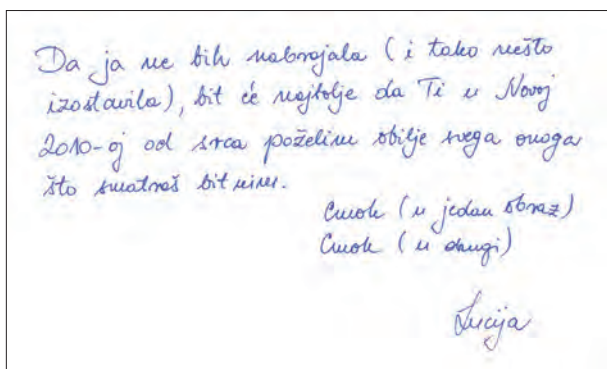 Da ja ne bih nabrajala (i tako nešto
izostavila), bit će najbolje da Ti u Novoj
2010-oj od srca poželim obilje svega onoga
što smatraš bitnim.
Cmok (u jedan obraz)
Cmok (u drugi)
Lucija